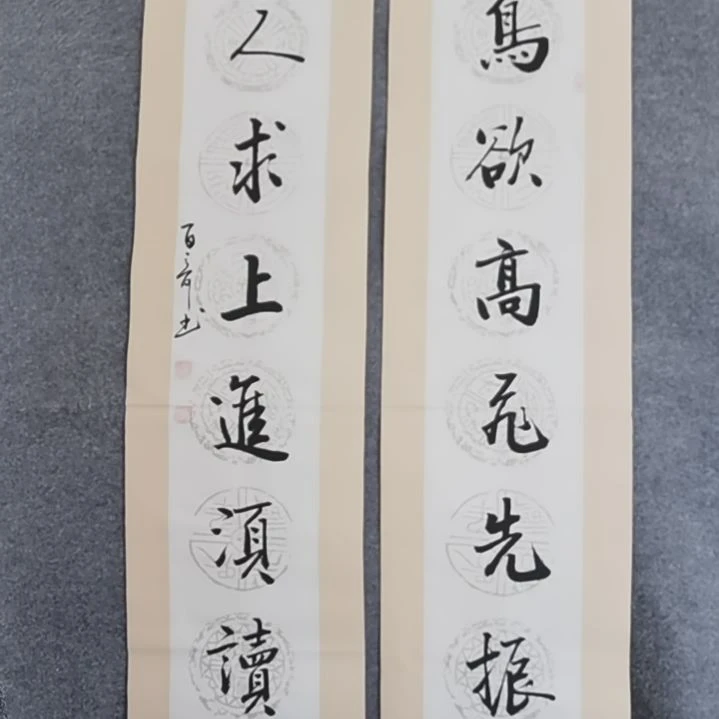 鳥欲高飛先振
人求上進須讀